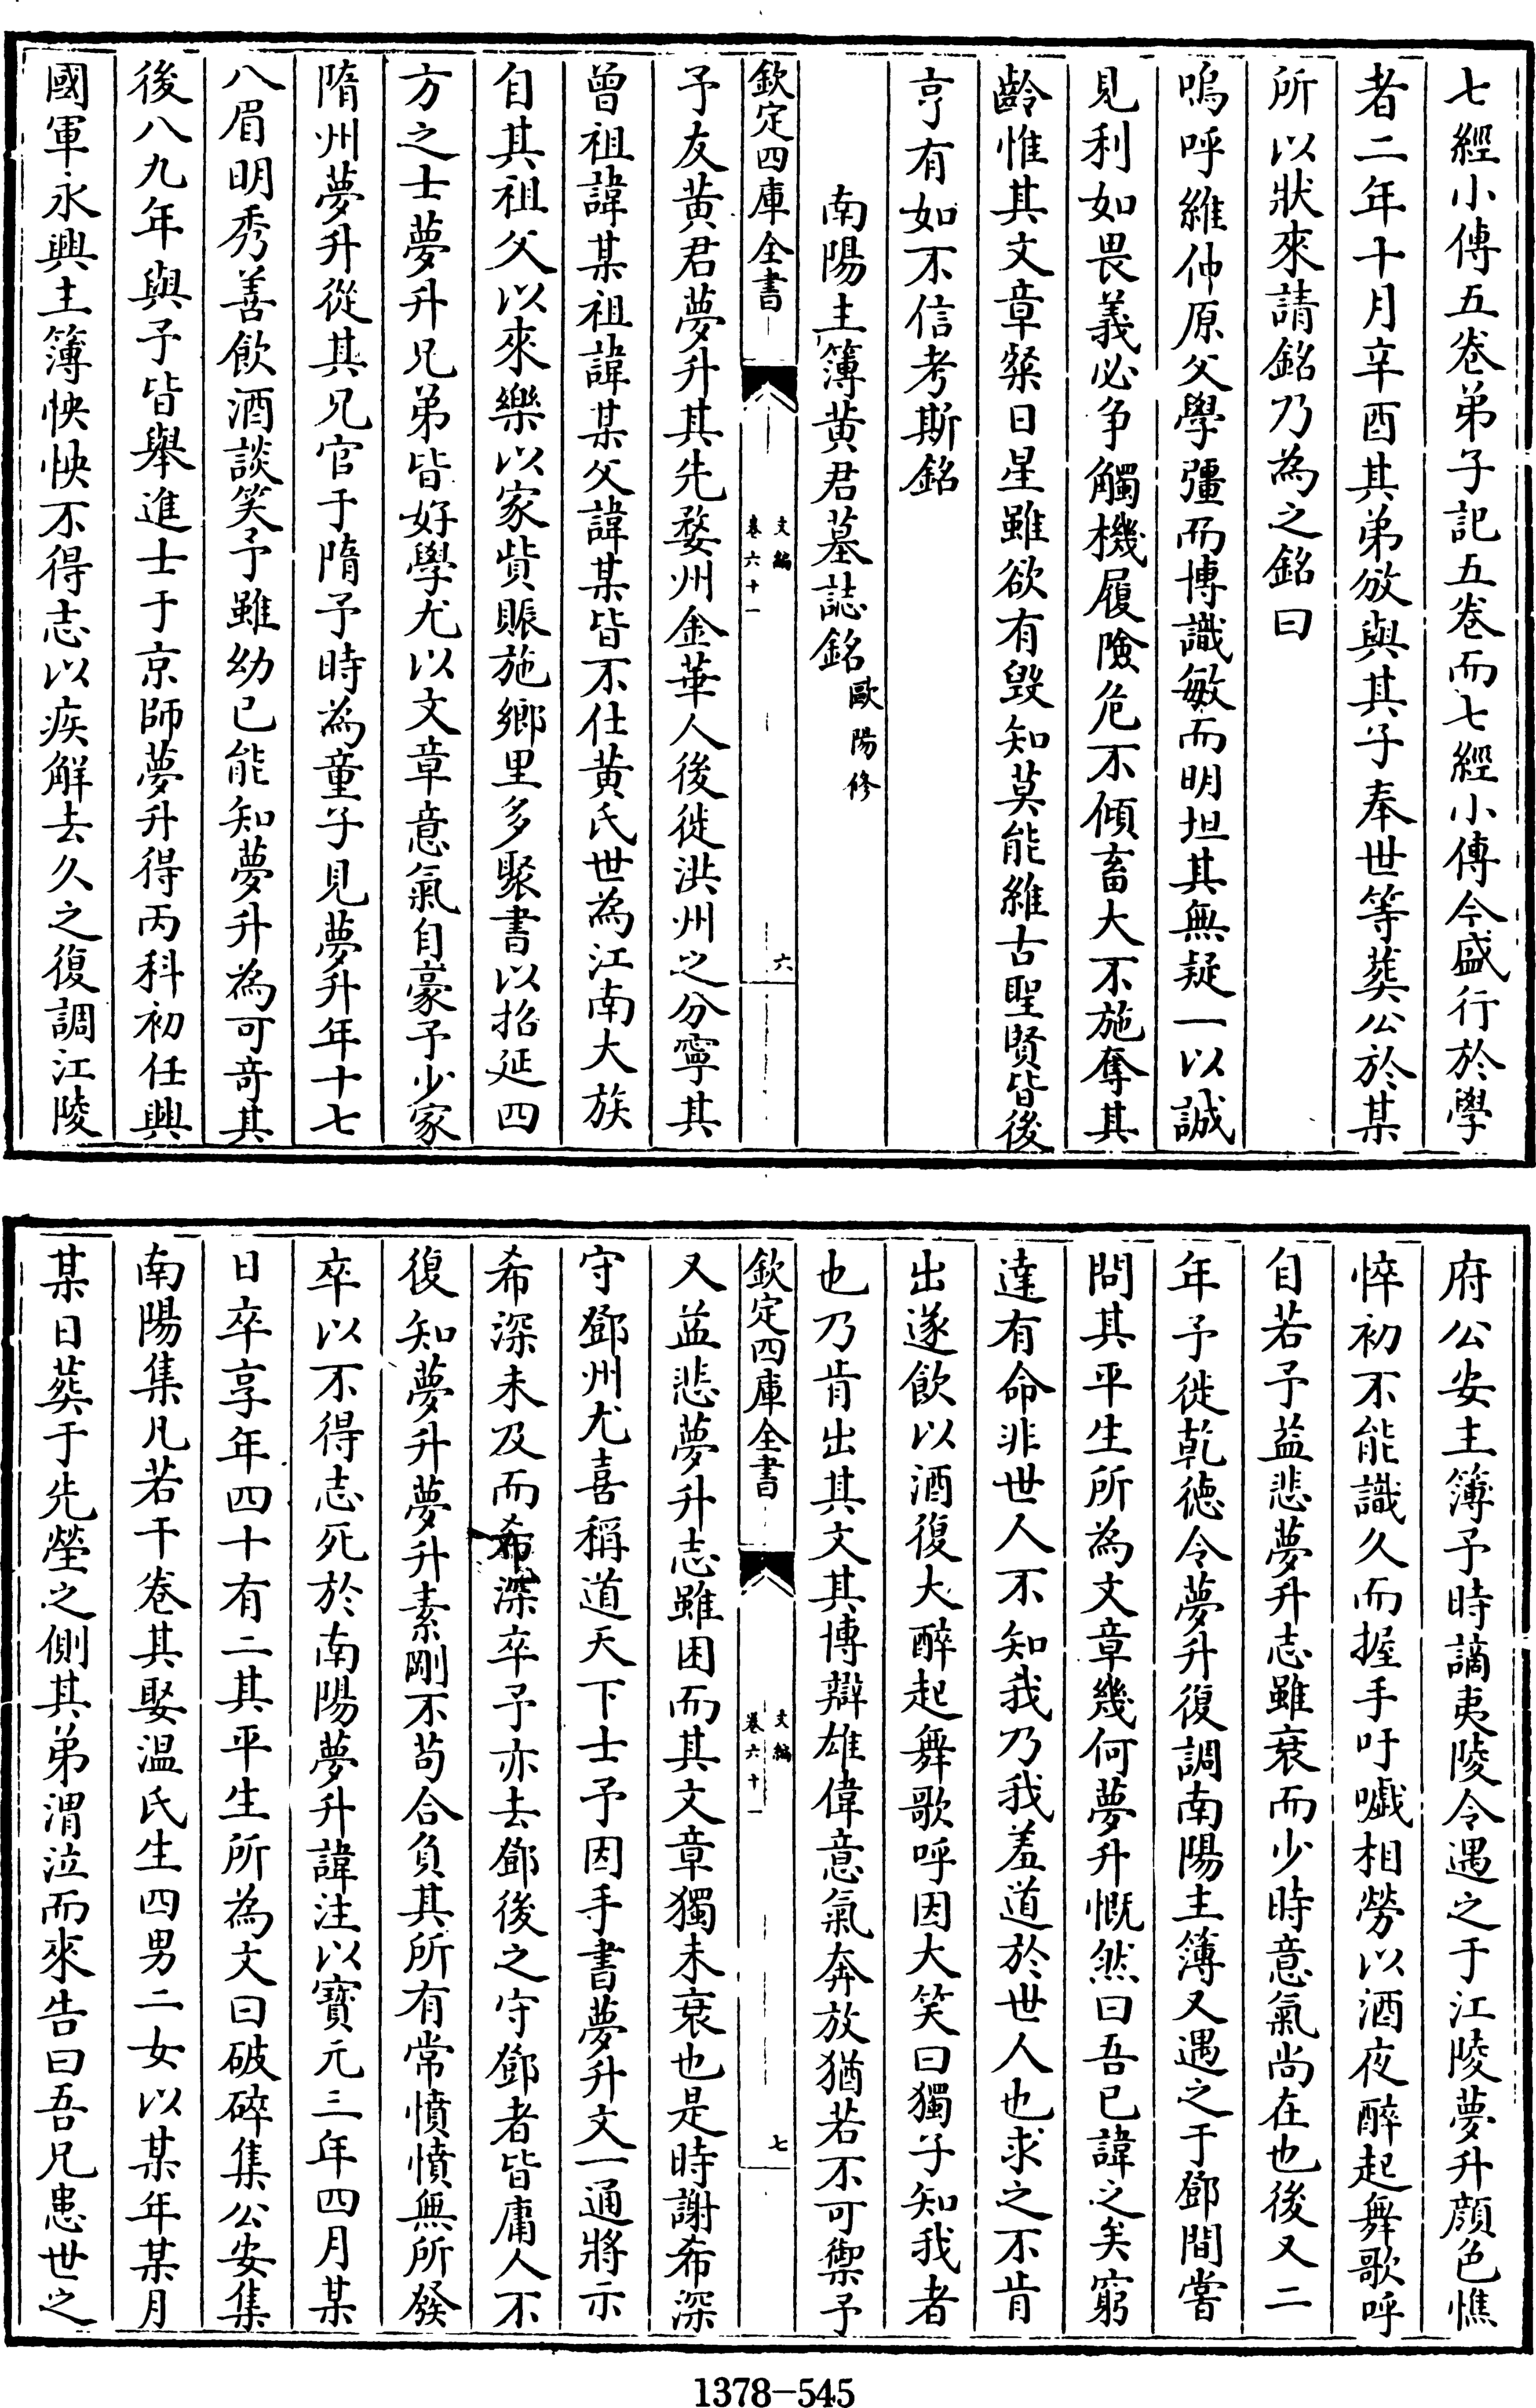 七經小傳五卷弟子記五卷而七經小傳今盛行於學
者二年十月辛酉其弟攽與其子奉世等葬公於某
所以狀來請銘乃為之銘曰
嗚呼維仲原父學彊而博識敏而明坦其無疑一以誠
見利如畏義必争觸機履險危不傾畜大不施奪其
齡惟其文章粲日星雖欲有毀知莫能維古聖賢皆後
亨有如不信考斯銘
南陽主簿黄君墓誌銘歐陽修
欽定四庫全書
文編
卷六十一
六
予友黄君夢升其先婺州金華人後徙洪州之分寧其
曾祖諱某祖諱某父諱某皆不仕黄氏世為江南大族
自其祖父以來樂以家貲賑施鄉里多聚書以招延四
方之士夢升兄弟皆好學尤以文章意氣自豪予少家
隋州夢升從其兄官于隋予時為童子見夢升年十七
八眉明秀善飲酒談笑予雖幼已能知夢升為可奇其
後八九年與予皆舉進士于京師夢升得丙科初任興
國軍永興主簿怏怏不得志以疾解去久之復調江陵
府公安主簿予時謫夷陵令遇之于江陵夢升顔色憔
悴初不能識久而握手吁嚱相勞以酒夜醉起舞歌呼
自若予益悲夢升志雖衰而少時意氣尚在也後又二
年予徙乾徳令夢升復調南陽主簿又遇之于鄧間嘗
問其平生所為文章幾何夢升慨然曰吾已諱之矣窮
達有命非世人不知我乃我羞道於世人也求之不肯
出遂飲以酒復大醉起舞歌呼因大笑曰獨子知我者
也乃肯出其文其博辯雄偉意氣奔放猶若不可禦予
欽定四庫全書
文編
卷六十一
七
又益悲夢升志雖困而其文章獨未衰也是時謝希深
守鄧州尤喜稱道天下士予因手書夢升文一通將示
希深未及而希深卒予亦去鄧後之守鄧者皆庸人不
復知夢升夢升素剛不苟合負其所有常憤憤無所發
卒以不得志死於南陽夢升諱注以寳元三年四月某
日卒享年四十有二其平生所為文曰破碎集公安集
南陽集凡若干卷其娶温氏生四男二女以某年某月
某日葬于先塋之側其弟渭泣而來告曰吾兄患世之
1378-545